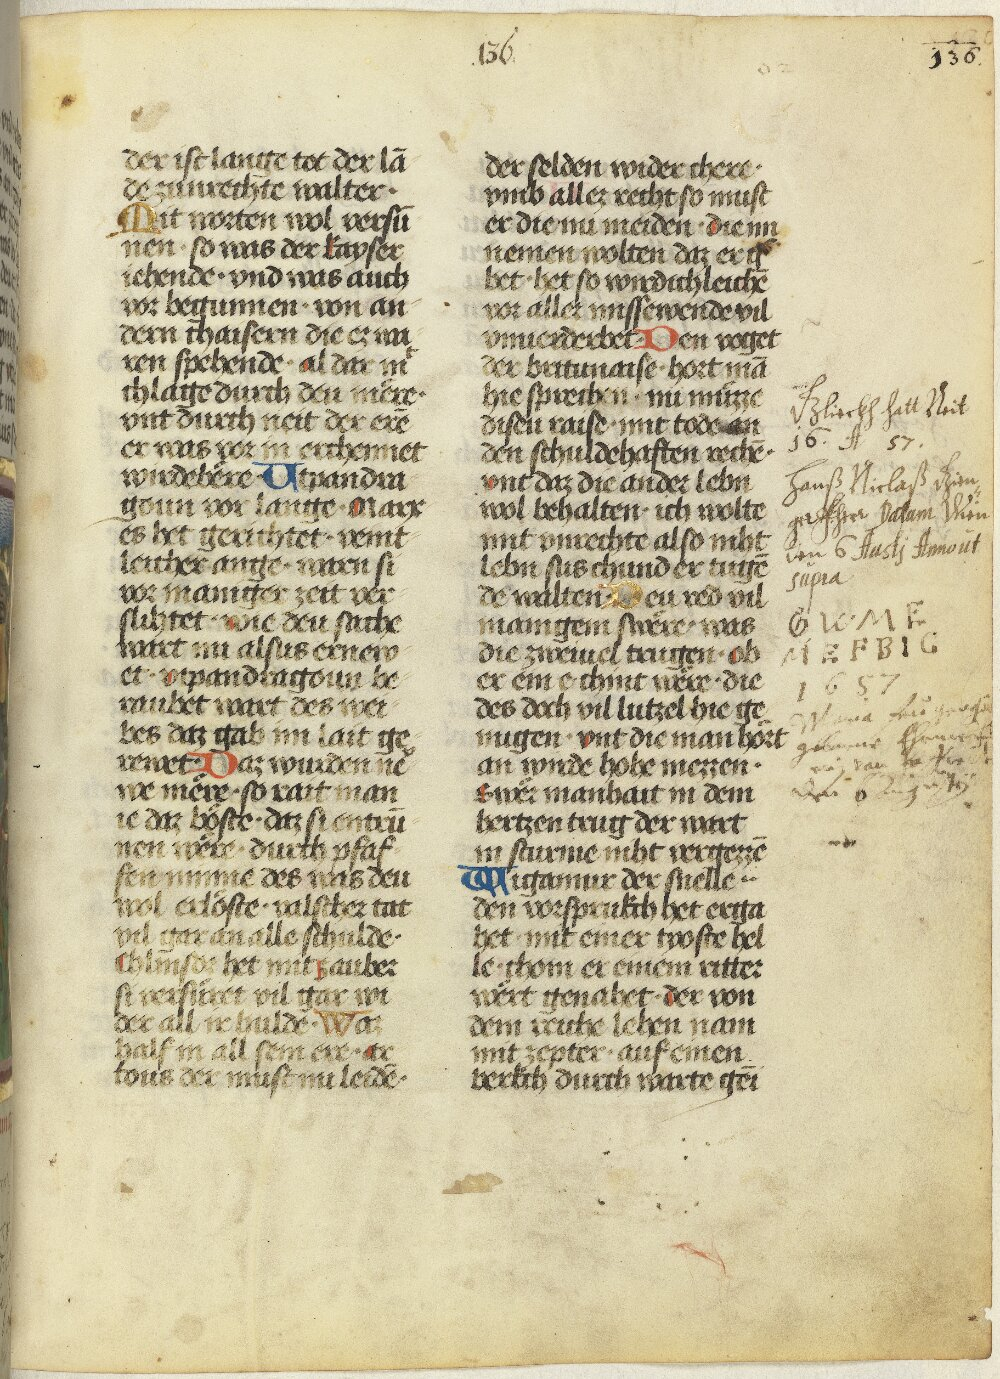 136
136
der ist lange tot der lā
de zunrechte walter·
Mit worten wol versu̅
nen· so was der kayser
iehende· vnd was auch
vor begunnen· von an
dern chaisern die ez wa
ren spehende· al dar in
chlage durch den mere·
vnt durch neit der ere
er was vor in erchennet
wirdebere· Utpandra
goun vor lange· Marx
es het gerichtet· veint
leicher ange· waren si
vor maniger zeit ver
slihtet· wie den sache
wart nu alsus ernew
et· vtpandragoun be
raubet wart des wei
bes daz gab im lait ge
rewet· Daz wurden ne̅
we mere· so rait man
ie daz böste· daz si entru̅
nen were· durch pfaf
fen minne des was deu
wol erlöste· valscher tat
vil gar an alle schulde·
chlinsor het mit zauber
si versüret vil gar wi
der all ir hulde· Waz
half in all sein ere· ar
tous der must nu leide̅·
der selden wider chere·
vmb allez recht so must
er die nu meiden· die im
nemen wolten daz er g
bet· het so wirdichleiche̅
vor aller missewende vil
vnuerderbet· Den voget
der britunaise· hort ma̅
hie sprechen· nu müzze
disen raise· mit tode an
den schuldehaften reche̅·
vnt daz die ander lebn
wol behalten· ich wolte
mit vnrechte also niht
lebn sus chund er tuge̅
de walten Deu red vil
manigem swere· was
die zweiuel trugen· ob
er ein e chint were· die
des doch vil lutzel hie ge
nugen· vnt die man hört
an wirde hohe mezzen·
swer manhait in dem
hertzen trug der wart
in sturme niht vergezze̅
Wigamur der snelle
den vorsprukch het erga
het· mit einer tyoste hel
le· chom er einem ritter
wert genahet· der von
dem reuhe leben nam
mit zepter· auf einen
berkch durch warte gen
hatt Neit
16· A 57·
Hanß Niclaß
den 6 Augustj Anno ut
supra
G W· M E
M E F B I G
1 6 5 7